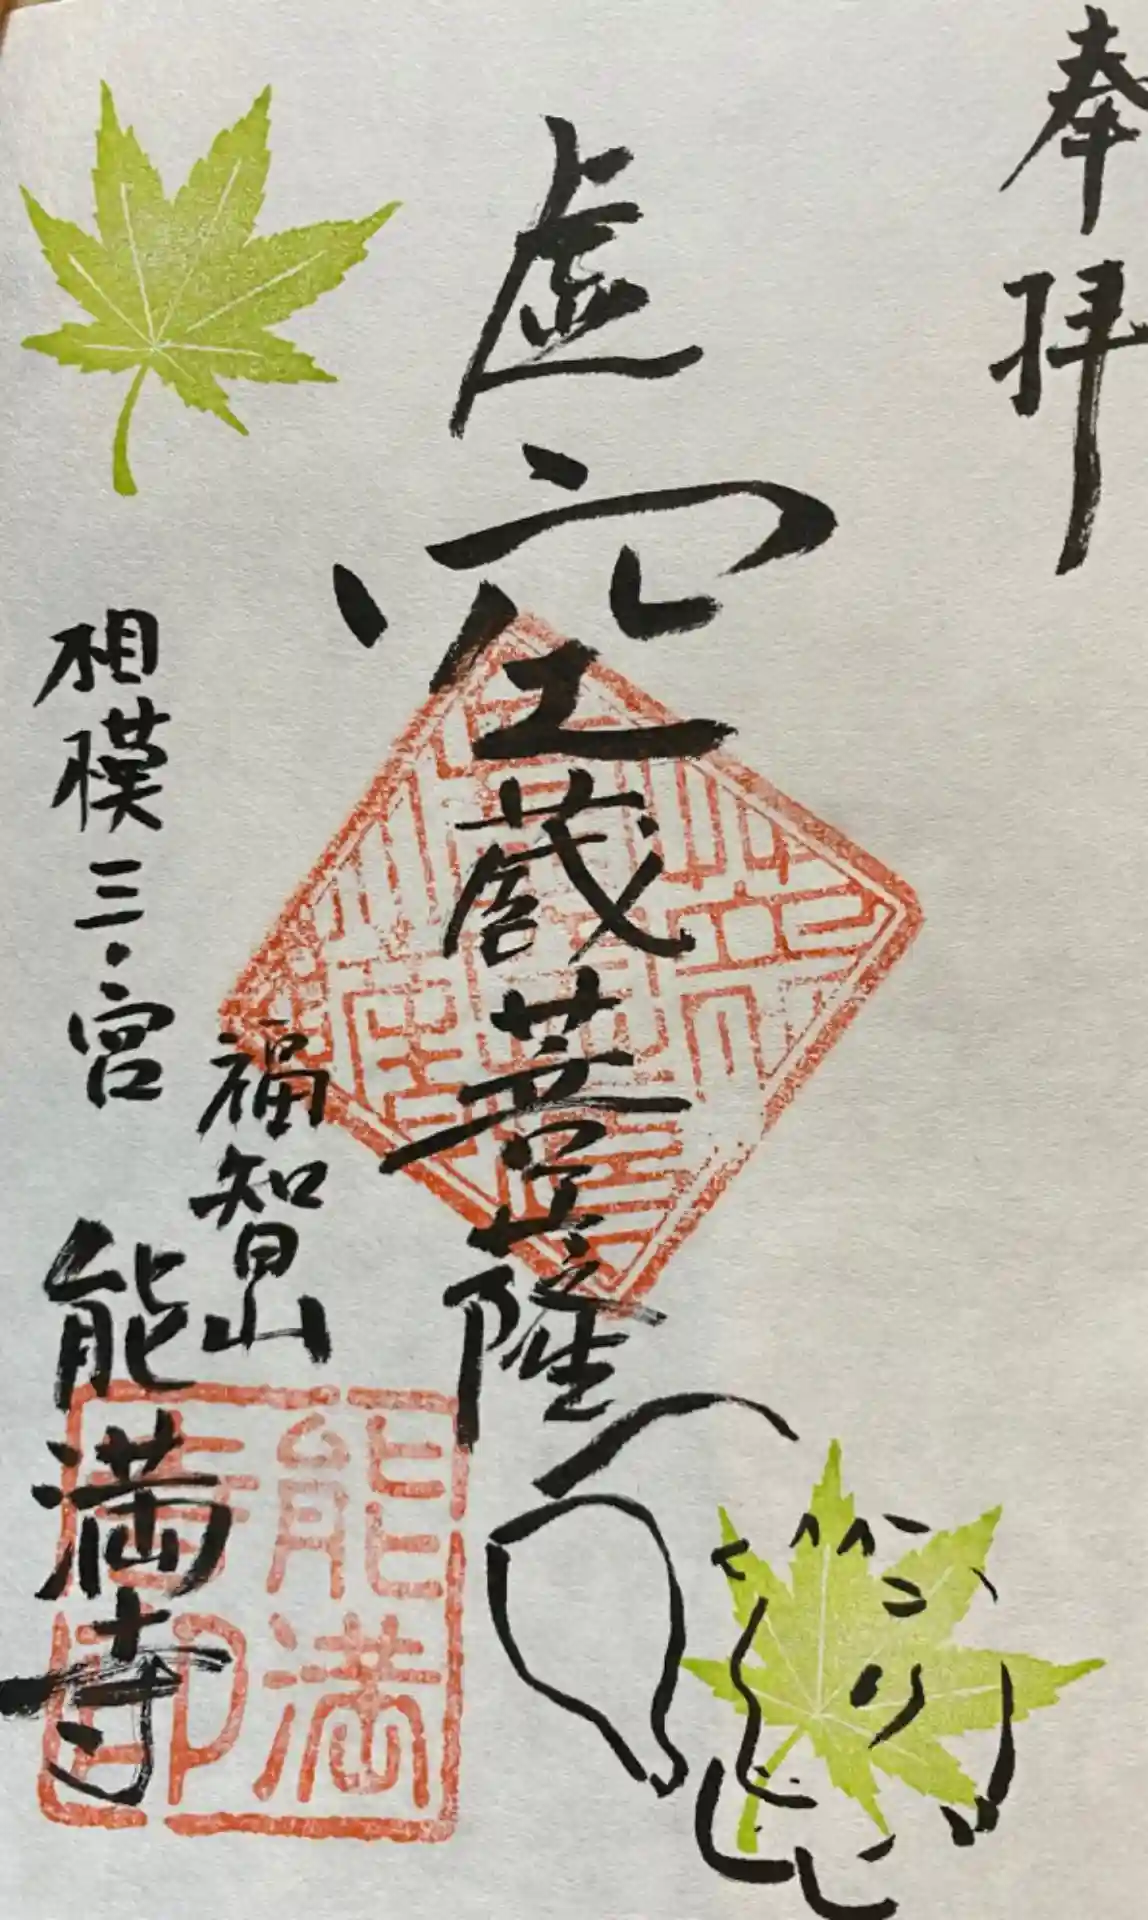 奉拝
虚空蔵菩薩
相模三・宮
福智山
能満寺
能満
寺印